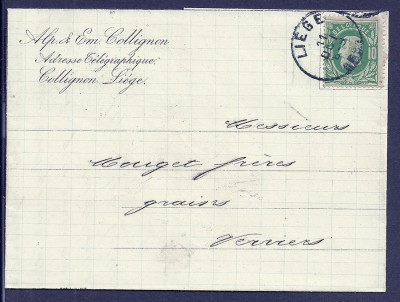 Alp. & Em. Collignon
Adresse Télégraphique:
Collignon Liége.
LIÉGE
Messieurs
Mouget frères
grains
Verviers